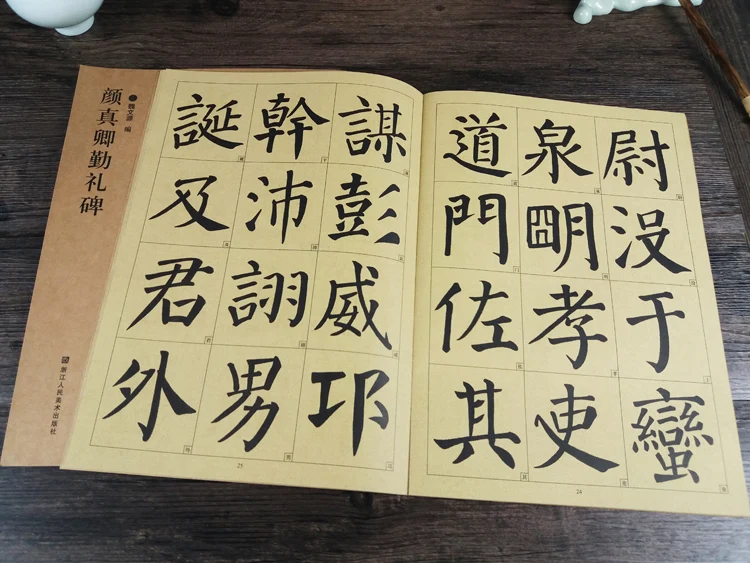 尉没于蠻
泉明孝吏
道門佐其
24
謀彭威邛
幹沛詡男
誕及君外
25
魏文源 编
颜真卿勤礼碑
浙江人民美术出版社